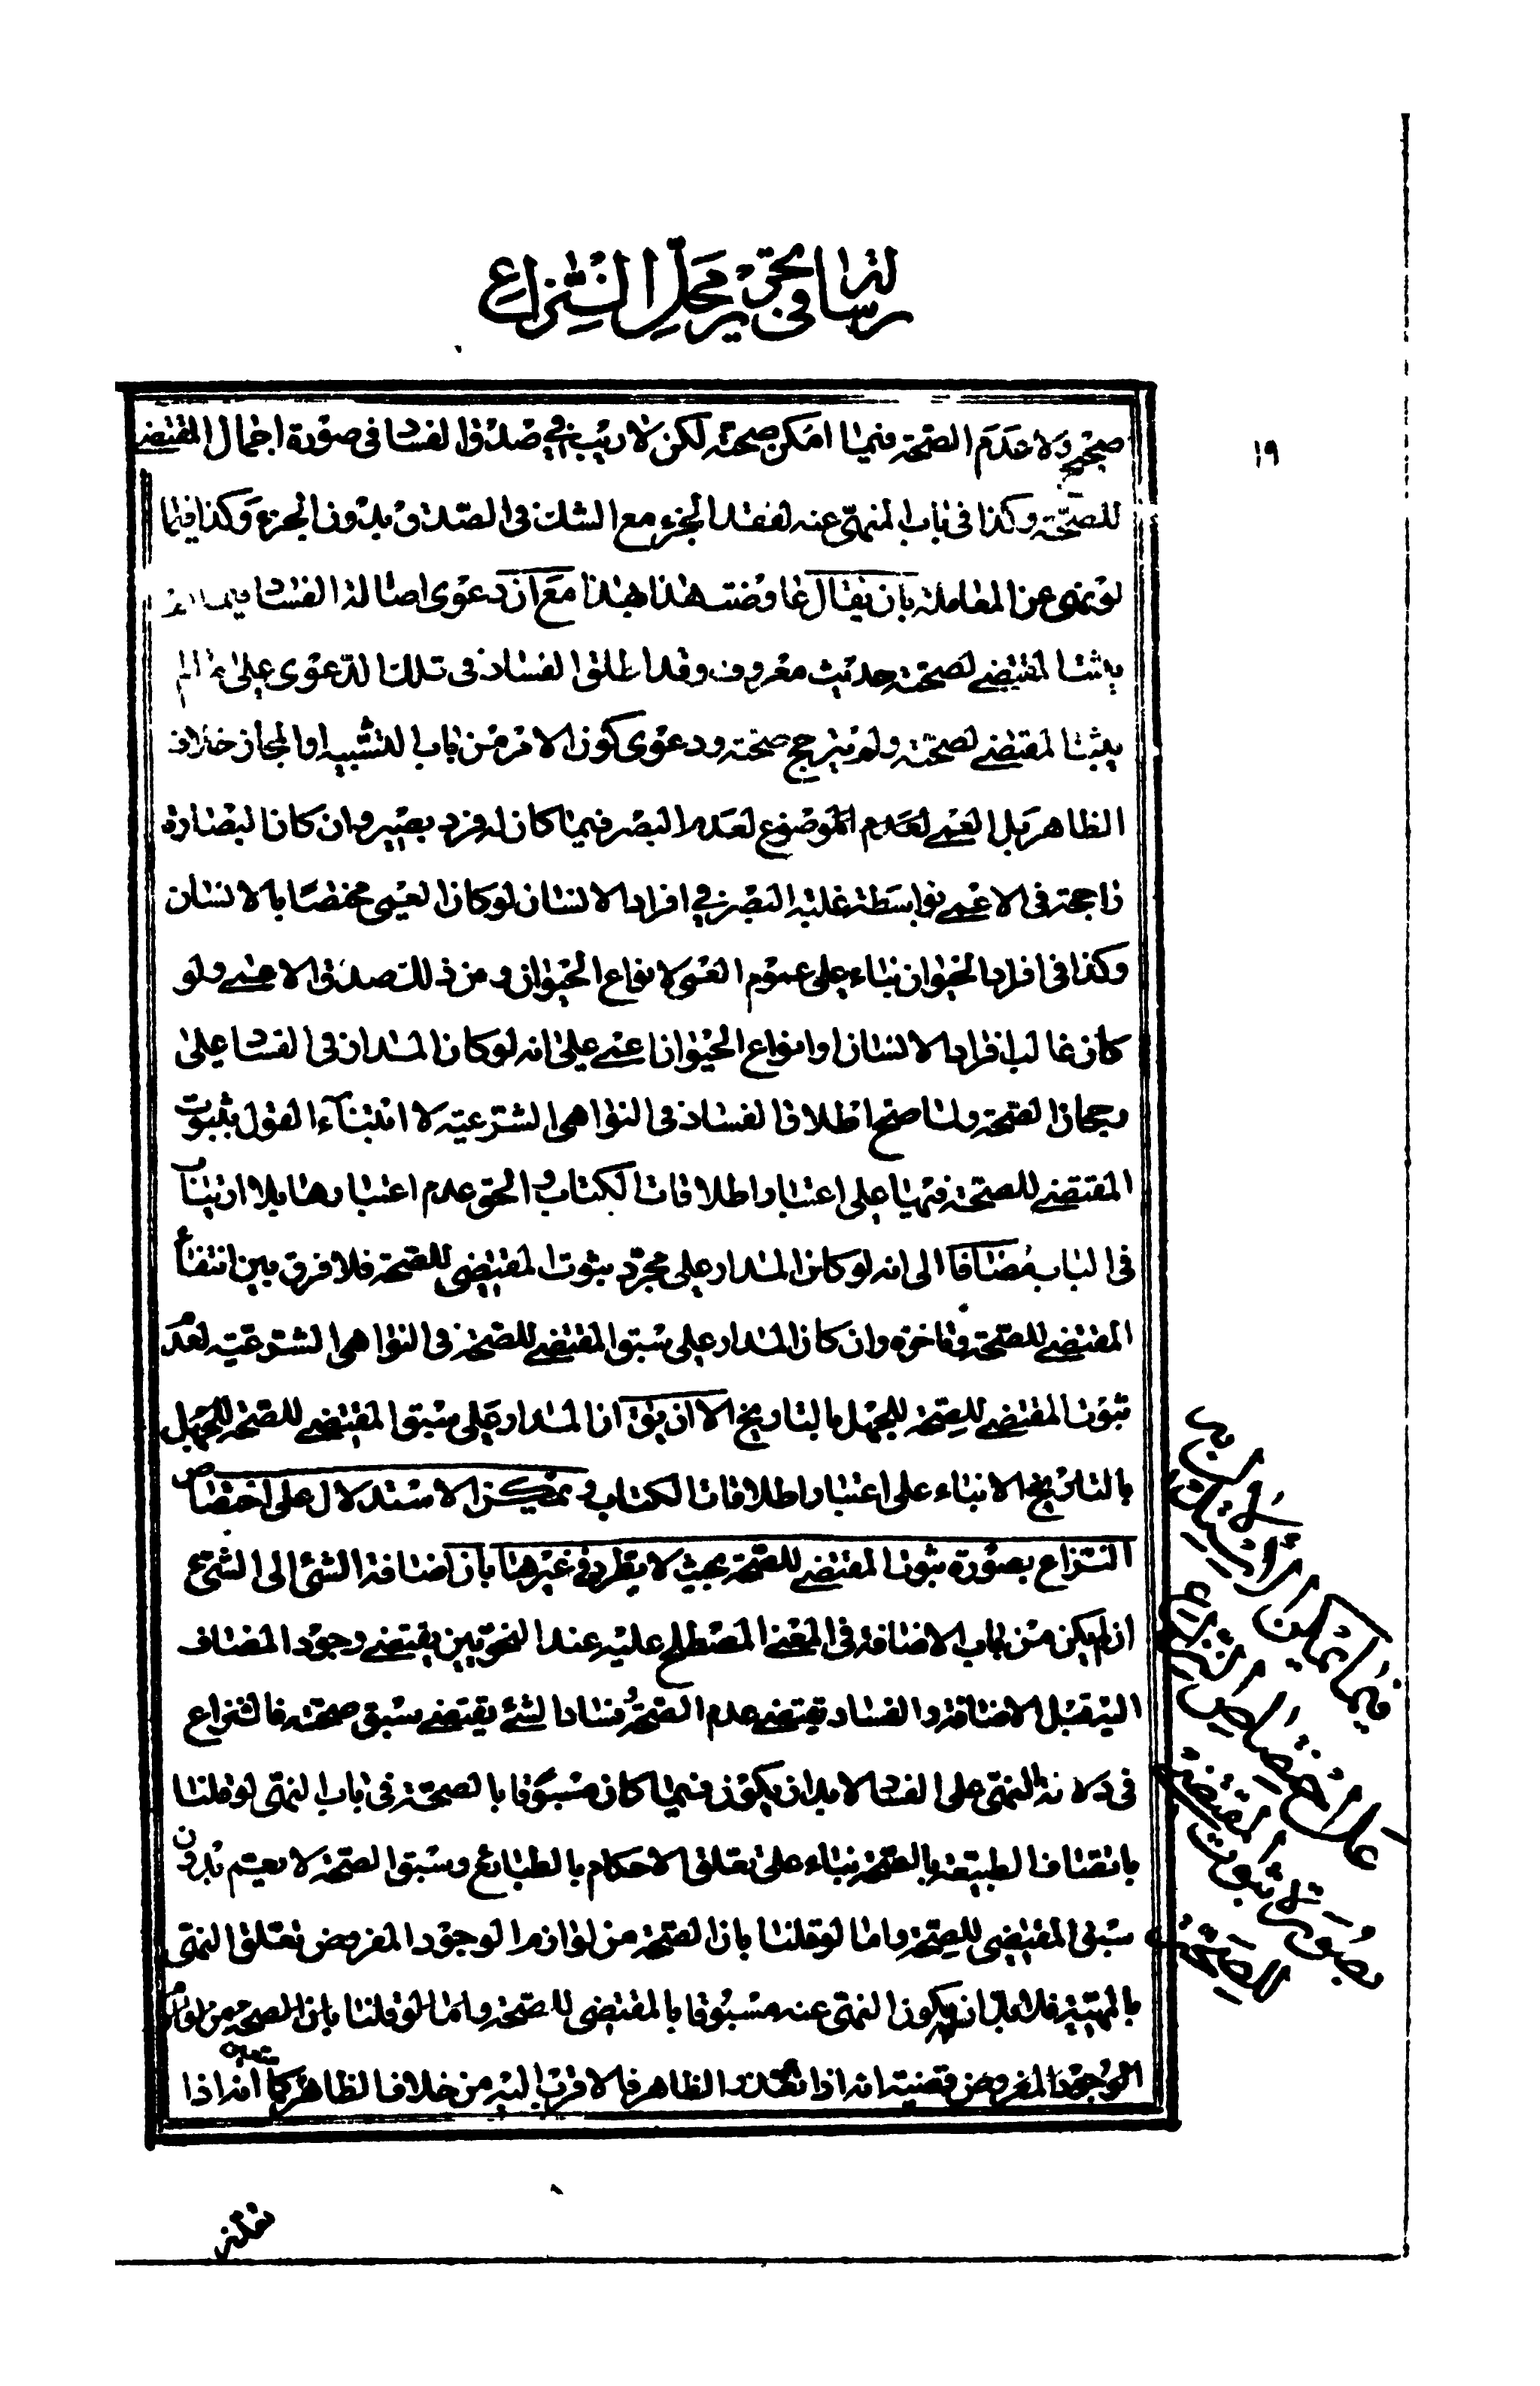 رسالة في تحرير محل النزاع
١٩
صحيح ولا عدم الصحة فيما امكن صحته لكن لا ريب في صدق الفساد في صورة اجمال المقتضى
للصحة وكذا في باب المنهى عنه لفقد الجزء مع الشك في الصدق بدون الجزء وكذا فيما
لو نهى عن المعاملة بان يقال عاوضت هذا هبذا مع ان دعوى اصالة الفساد فيما لم
يثبت المقتضى لصحته حديث معروف وقد اطلق الفساد في تلك الدعوى على ما لم
يثبت المقتضى لصحته ولم يترجح صحته ودعوى كون الامر من باب التشبيه او المجاز خلاف
الظاهر بل العمى لعدم الموضوع لعدم البصر فيما كان له فرد بصير وان كان البصارة
راجحة في الاعمى بواسطة غلبة البصر في افراد الانسان لو كان العمى مختصا بالانسان
وكذا في افراد الحيوان بناء على عموم العمى لانواع الحيوان ومن ذلك صدق الاعمى ولو
كان غالب افراد الانسان او انواع الحيوان اعمى على انه لو كان المدار في الفساد على
رجحان الصحة ولما صح اطلاق الفساد في النواهى الشرعية لابتناء القول بثبوت
المقتضى للصحة فيها على اعتبار اطلاقات الكتاب والحق عدم اعتبارها بلا ارتياب
في الباب مضافا الى انه لو كان المدار على مجرد ثبوت المقتضى للصحة فلا فرق بين انتفاء
المقتضى للصحة وتاخره وان كان المدار على سبق المقتضى للصحة في النواهى الشرعية لعدم
ثبوت المقتضى للصحة للجهل بالتاريخ الا ان يق ان المدار على سبق المقتضى للصحة للجهل
بالتاريخ الا بناء على اعتبار اطلاقات الكتاب و يمكن الاستدلال على اختصاص
النزاع بصورة ثبوت المقتضى للصحة بحيث لا يطرد في غيرها بان اضافة الشئ الى الشئ
ان لم يكن من باب الاضافة في المعنى المصطلح عليه عند النحويين يقتضى وجود المضاف
اليه قبل الاضافة والفساد يقتضى عدم الصحة ففساد الشئ يقتضى سبق صحته فالنزاع
في دلالة النهى على الفساد لابد ان يكون فيما كان مسبوقا بالصحة في باب النهى لو قلنا
باتصاف الطبيعة بالصحة بناء على تعلق الاحكام بالطبائع وسبق الصحة لا يعم بدون
سبق المقتضى للصحة واما لو قلنا بان الصحة من لوازم الوجود المفروض تعلق النهى
بالمهية فلابد ان يكون النهى عنه مسبوقا بالمقتضى للصحة واما لو قلنا بان الصحة من لوازم
الوجود المفروض قضية انه اذا تعذر الظاهر فالاقرب اليه من خلاف الظاهر كما انه اذا
متعين
فيما يمكن الاستدلال به
على اختصاص النزاع
بصورة ثبوت المقتضى
للصحة